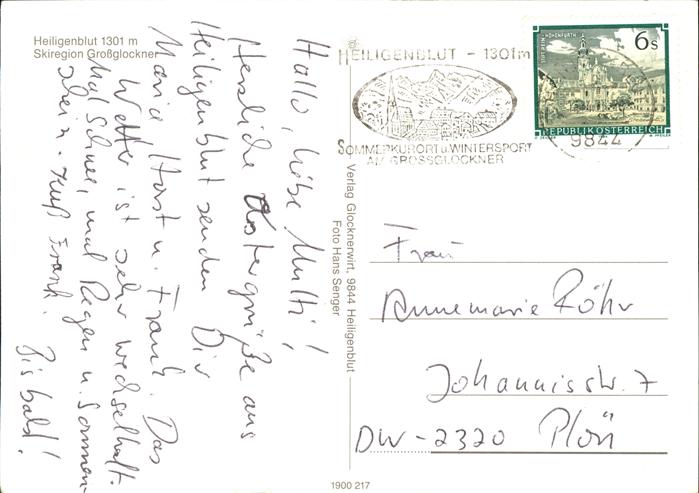 Heiligenblut 1301 m
Skiregion Großglockner
Hallo, liebe Mutti!
Herzliche Ostergrüße aus
Heiligenblut senden Dir
Maria, Horst u. Frank. Das
Wetter ist sehr wechselhaft.
Mal Schnee, mal Regen u. Sonnen-
schein. Kuß Frank. Bis bald!
Verlag Glocknerwirt, 9844 Heiligenblut
Foto Hans Senger
1900 217
HEILIGENBLUT - 1301m
SOMMERKURORT u. WINTERSPORT
AM GROSSGLOCKNER
STIFT REIN-HOHENFURTH
6 S
REPUBLIK ÖSTERREICH
9844
Frau
Annemarie Röhr
Johannisstr. 7
DW-2320 Plön